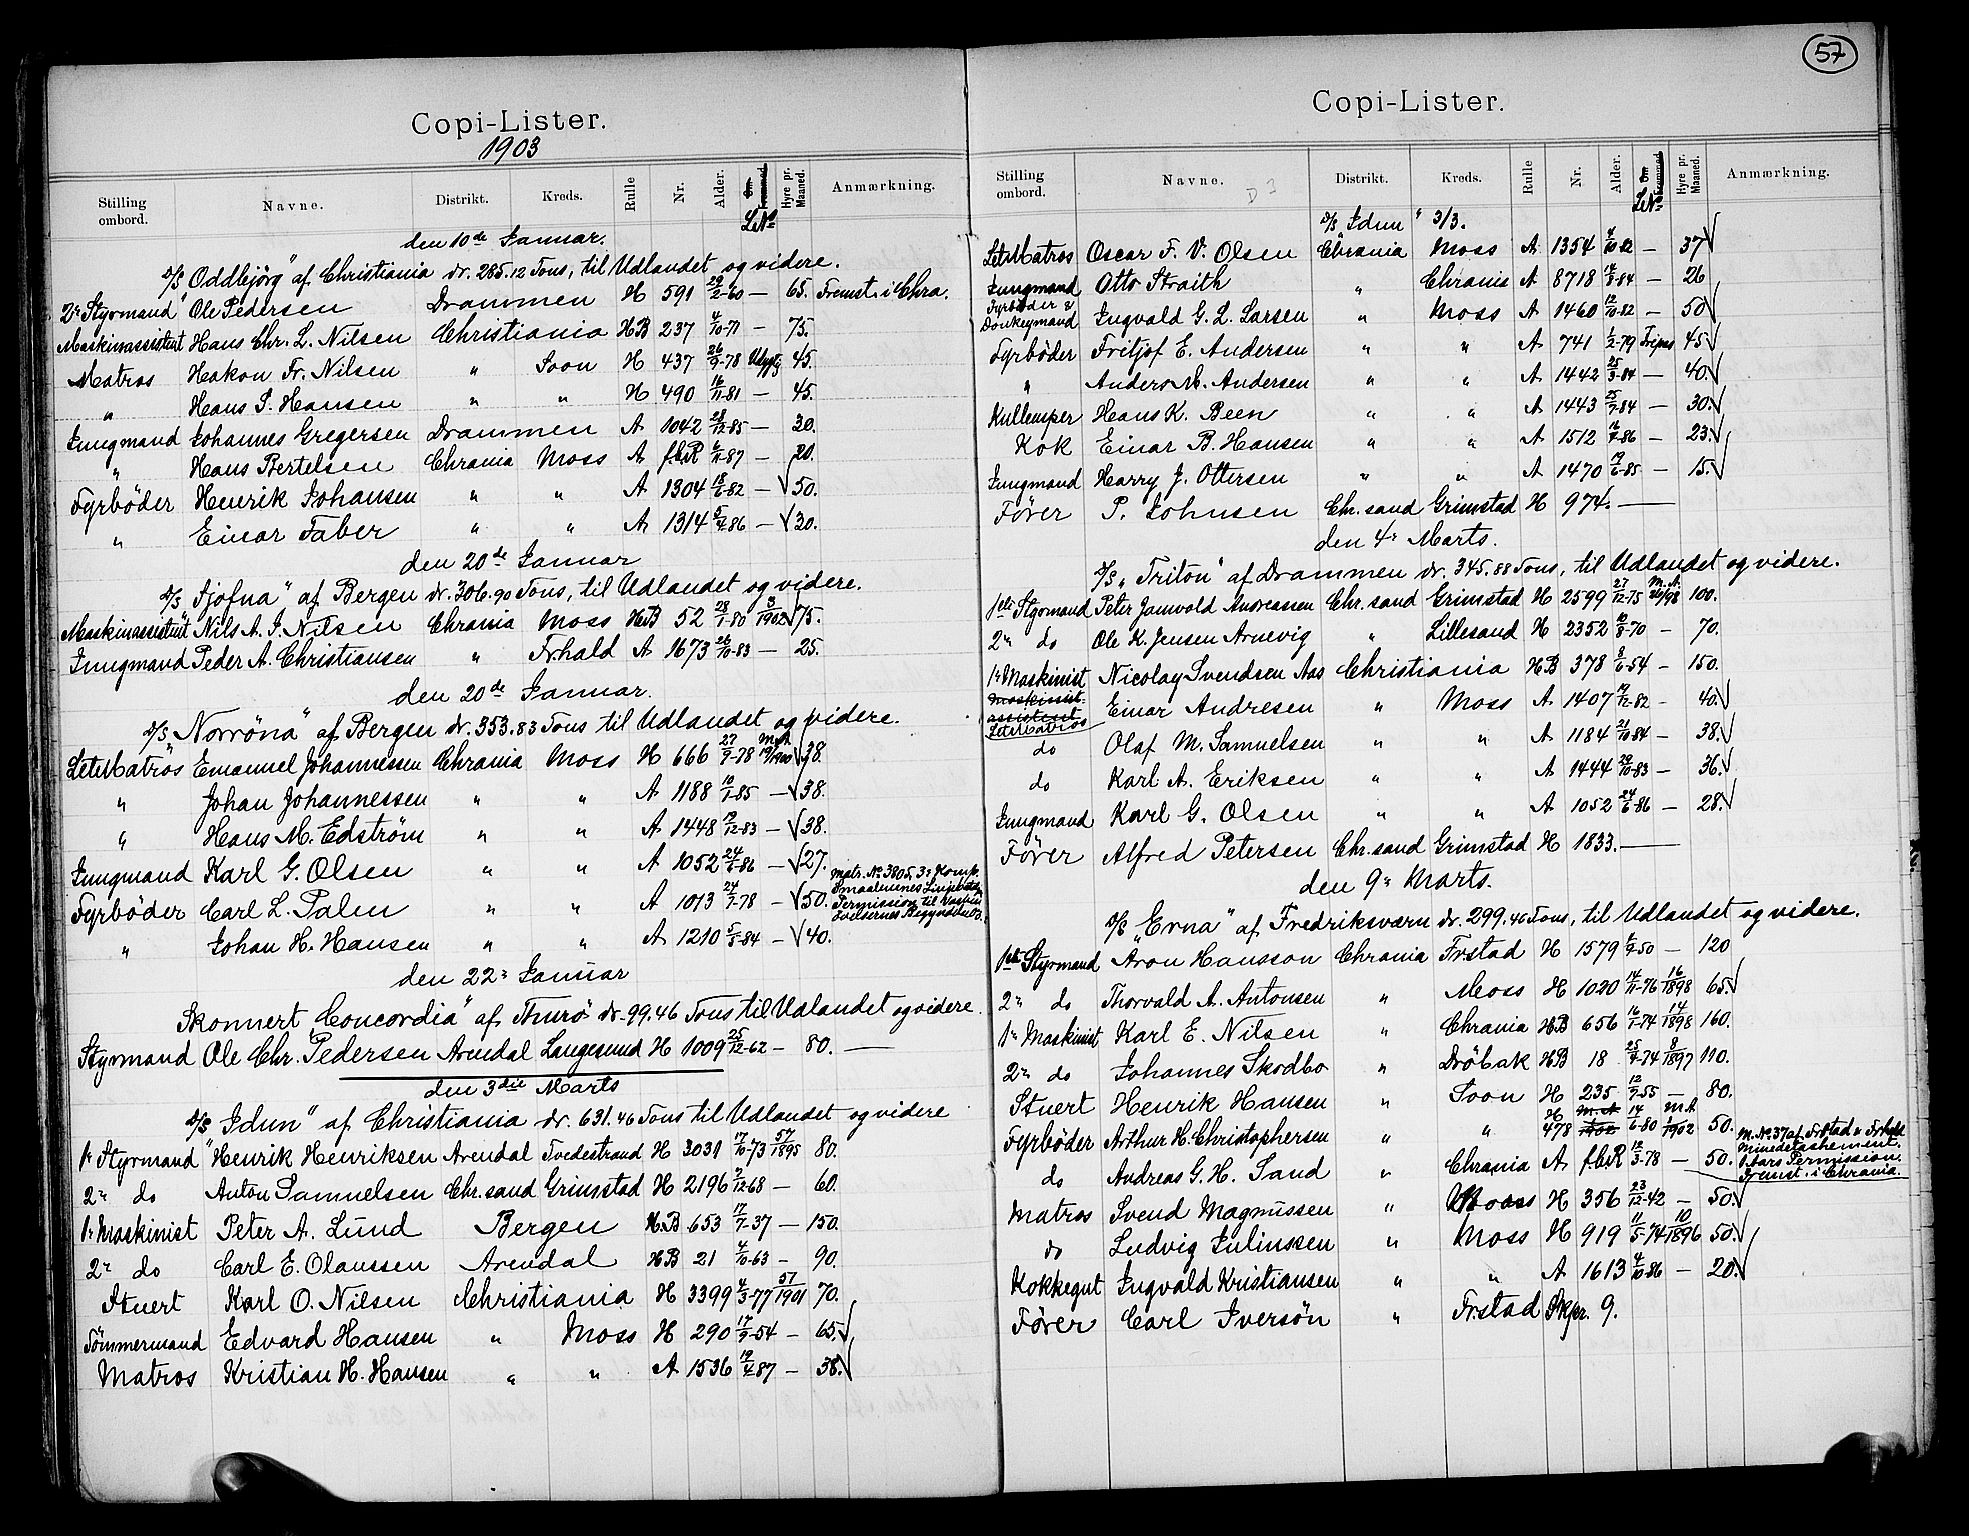 Copi-Lister.
1903
Stilling ombord. Navne. Distrikt. Kreds. Rulle Nr. Alder. Om Hyre pr. Maaned. Anmærkning.
den 10de Januar.
D/S "Oddbjörg" af Christiania dr. 285.12 Tons, til Udlandet og videre.
2r Styrmand Ole Pedersen Drammen H 591 29/2-60 — 65. Fremst. i Chra.
Maskinassistent Hans Chr. L. Nilsen Christiania HB 237 4/10-71 — 75.
Matros Hakon Fr. Nilsen " Soon H 437 26/9-78 45.
" Hans S. Hansen " " H 490 16/11-81 — 45.
Jungmand Johannes Gregersen Drammen A 1042 28/12-85 — 30.
" Hans Bertelsen Chrania Moss A f.b.R 6/11-87 — 20.
Fyrböder Henrik Johansen " " A 1304 18/6-82 — √ 50.
" Einar Faber " " A 1314 5/4-86 — √ 30.
den 20de Januar
D/S "Sjofna" af Bergen dr. 306.90 Tons, til Udlandet og videre.
Maskinassistent Nils A. J. Nilsen Chrania Moss HB 52 28/1-80 3/1902 √ 75.
Jungmand Peder A. Christiansen " Frhald A 1673 26/10-83 — 25.
den 20de Januar.
D/S "Norröna" af Bergen dr. 353.83 Tons til Udlandet og videre.
LetMatros Emanuel Johannessen Chrania Moss H 666 27/9-78 M.A. 19/1900 √ 38.
" Johan Johannessen " " A 1188 10/1-85 — √ 38.
" Hans M. Edström " " A 1448 19/12-83 — √ 38.
Jungmand Karl G. Olsen " " A 1052 24/6-86 — √ 27.
Fyrböder Carl L. Palen " " A 1013 24/7-78 — √ 50. Matr. No 3805, 3r Komp. Smaalenenes Permission til Begyndelse.
" Johan H. Hansen " " A 1210 5/5-84 — √ 40.
den 22r Januar
Skonnert "Concordia" af Thurö dr. 99.46 Tons til Udlandet og videre.
Styrmand Ole Chr. Pedersen Arendal Langesund H 1009 25/12-62 — 80. —
den 3die Marts
D/S "Idun" af Christiania dr. 631.46 Tons til Udlandet og videre
1r Styrmand Henrik Henriksen Arendal Tvedestrand H 3031 17/10-73 57/1895 80.
2r do Anton Samuelsen Chr.sand Grimstad H 2196 9/12-68 — 60.
1r Maskinist Peter A. Lund Bergen H.B 653 17/7-37 — 150.
2r do Carl E. Olaussen Arendal HB 21 4/10-63 — 90.
Stuert Karl O. Nilsen Christiania H 3399 4/3-77 57/1901 70.
Tömmermand Edvard Hansen " Moss H 290 17/9-54 — 65. √
Matros Kristian H. Hansen " " A 1536 19/4-87 — 38. √
57
Copi-Lister.
Stilling ombord. Navne. Distrikt. Kreds. Rulle Nr. Alder. Om Hyre pr. Maaned. Anmærkning.
D/S "Idun" 3/3.
LetMatros Oscar F. V. Olsen Chrania Moss A 1354 4/10-82 — 37 √
Jungmand Otto Straith " Chrania A 8718 14/8-84 — 26
Fyrböder & Donkeymand Ingvald G. L. Larsen " Moss A 1460 12/10-82 — 50 √
Fyrböder Fritjof E. Andersen " " A 741 1/2-79 45 √
" Anders M. Andersen " " A 1442 25/3-84 — 40. √
Kullemper Hans K. Been " " A 1443 25/7-84 — 30. √
Kok Einar B. Hansen " " A 1512 16/9-86 — 23. √
Jungmand Harry J. Ottersen " " A 1470 19/6-85 — 15. √
Förer P. Johnsen Chr.sand Grimstad H 974. —
den 4r Marts.
D/S "Triton" af Drammen dr. 345.88 Tons, til Udlandet og videre.
1ste Styrmand Peter Jamvold Andreassen Chr.sand Grimstad H 2599 27/12-75 M.A. 26/98 100.
2r do Ole K. Jensen Arnevig " Lillesand H 2352 10/8-70 — 70.
1r Maskinist Nicolay Svendsen Aas Christiania HB 378 8/6-54 — 150.
Maskinist.assistent LetMatros Einar Andresen " Moss A 1407 19/12-82 — 40. √
do Olaf M. Samuelsen " " A 1184 21/10-84 — 38. √
do Karl A. Eriksen " " A 1444 29/10-83 — 36. √
Jungmand Karl G. Olsen " " A 1052 24/6-86 — 28. √
Förer Alfred Petersen Chr.sand Grimstad H 1833. —
den 9r Marts.
D/S "Erna" af Fredriksværn dr. 299.46 Tons, til Udlandet og videre.
1ste Styrmand Aron Hansson Chrania Frstad H 1579 6/9-50 — 120
2r do Thorvald A. Antonsen " Moss H 1020 14/11-76 16/1898 65. √
1r Maskinist Karl E. Nilsen " Chrania HB 656 16/1-74 14/1898 160.
2r do Johannes Skodbo " Dröbak HB 18 25/4-74 8/1897 110.
Stuert Henrik Hansen " Soon H 235 12/7-55 — 80.
Fyrböder Arthur H. Christophersen " " H 478 M.A. 1902 14/6-80 M.A. 1/1902 50.
do Andreas G. H. Sand " Chrania A f.b.R 12/3-78 — 50. M. No 37 af Frstad & Frhald Minedetashement. Aars Permission. Fremst. i Chrania.
Matros Svend Magnussen " Moss H 356 23/12-42 — 50 √
do Ludvig Julinssen " Moss H 919 11/5-74 10/1896 50. √
Kokkegut Ingvald Kristiansen " " A 1613 4/10-86 — 20. √
Förer Carl Iversön " Frstad Skpr. 9.